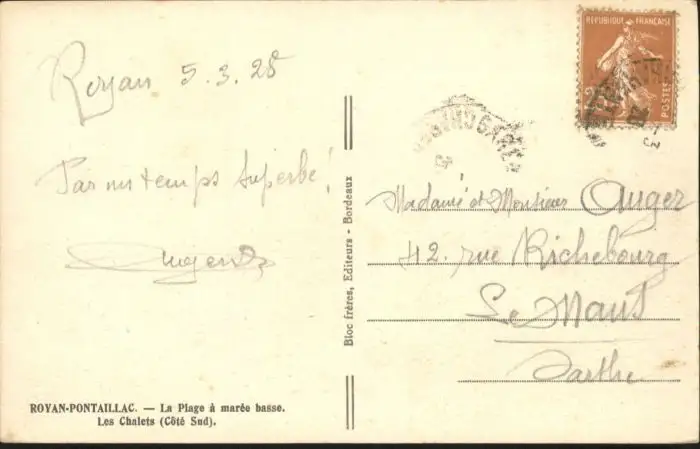 Royan 5.3.28
Par un temps superbe!
ROYAN-PONTAILLAC. — La Plage à marée basse.
Les Chalets (Côté Sud).
Bloc frères, Editeurs - Bordeaux
RÉPUBLIQUE FRANÇAISE
POSTES
Madame et Monsieur Auger
42. rue Richebourg
Le Mans
Sarthe